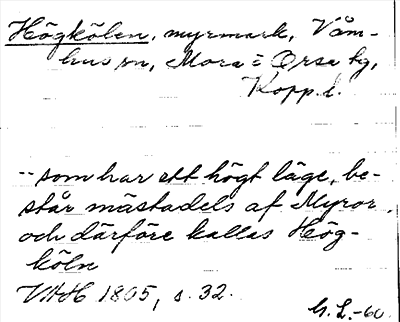 Högkölen, myrmark, Våm-
hus sn, Mora o Orsa tg,
Kopp. l.
-- som har ett högt läge, be-
står mästadels af Myror,
och därföre kallas Hög-
köln
VAH 1805, s. 32.
G. L. -60.